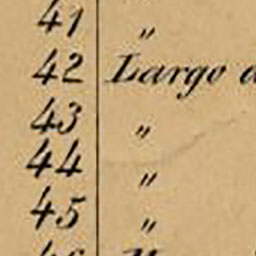 41 〃
42 Largo
43 〃
44 〃
45 〃